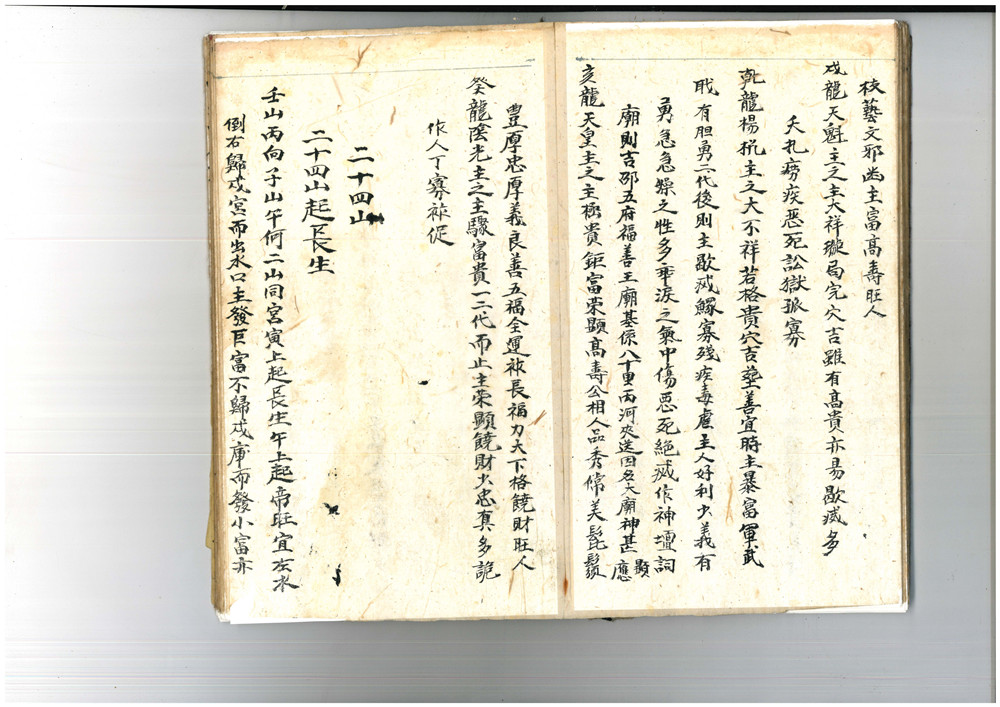 技藝文邪齒主富高壽旺人
戌龍天魁主之主大祥璇局完穴吉雖有高貴亦易歇滅多
夭扎癆疾惡死訟獄孤寡
乾龍楊柷主之大不祥若格貴穴吉塟善宜時主暴富軍武
戢有胆勇二代後則主歇滅鰥寡殘疾毒虐主人好利少義有
勇急急燥之性多乖淚之氣中傷惡死絕滅作神壇詞
廟則吉邵五府福善王廟基係八十里丙河夾送因名大廟神甚顯應
亥龍天皇主之主極貴鉅富荣顯高壽公相人品秀偹美髭鬚
豊厚忠厚義良善五福全運祿長福力大下格饒財旺人
癸龍陰光主之主驟富貴一二代而止主荣顯饒財少忠真多詭
作人丁寡祿促
二十四山
二十四山起長生
壬山丙向子山午向二山同宮寅上起長生午上起帝旺宜左水
倒右歸戌宮而出水口主發巨富不歸戌庫而發小富亦